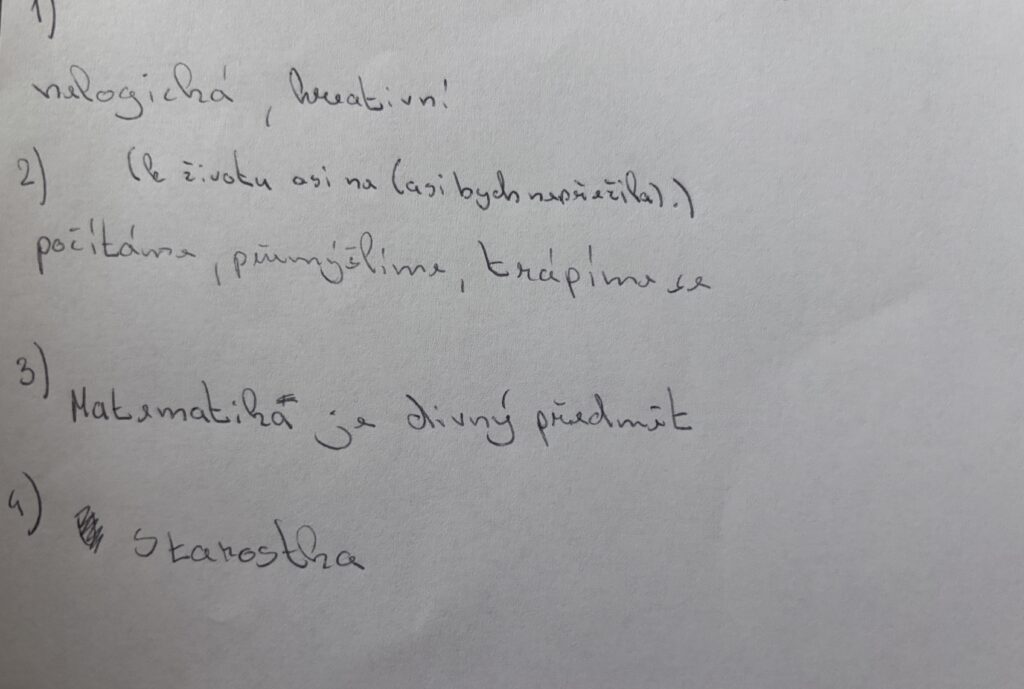 1)
nelogická, kreativní
2) (k životu asi na (asi bych nepřežila).)
počítáme, přemýšlíme, trápíme se
3)
Matematika je divný předmět
4) Starostka